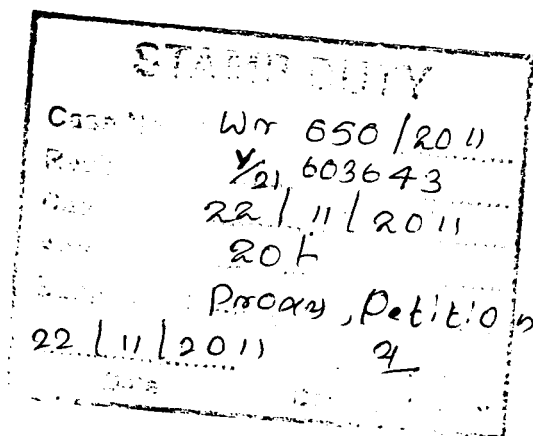 STAMP DUTY
Case No Wr 650/2011
Y/21 603643
22/11/2011
20/-
Proxy, Petition
22/11/2011
Date